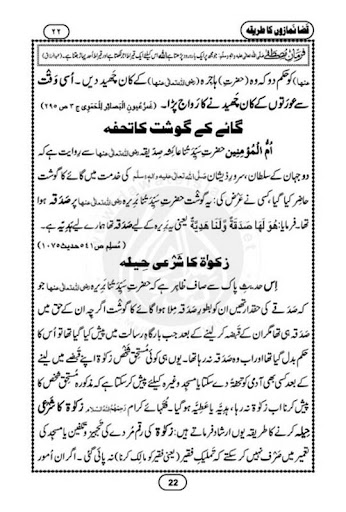 قضا نمازوں کا طریقہ
۲۲
فرمانِ مصطفٰے صلی اللہ تعالیٰ علیہ والہٖ وسلم
عنہا) کو حکم دو کہ وہ (حضرتِ) ہاجرہ (رضی اللہ تعالیٰ عنہا) کے کان چھید دیں۔ اُسی وَقت
سے عورَتوں کے کان چَھیدنے کا رَواج پڑا۔ (غمزعیون البصائر للحموی ج ۳ ص ۲۹۵)
گائے کے گوشت کا تحفہ
اُمُّ الْمُؤْمِنِین حضرتِ سیِّدَتُنا عائشہ صِدّیقہ رضی اللہ تعالیٰ عنہا سے روایت ہے کہ
دو جہان کے سلطان، سرورِ ذیشان صلی اللہ تعالیٰ علیہ والہٖ وسلم کی خدمت میں گائے کا گوشت
حاضِر کیا گیا کسی نے عرض کی: یہ گوشت حضرتِ سیِّدَتُنا بَریرہ رضی اللہ تعالیٰ عنہا پر صَدَقہ
تھا۔ فرمایا: هُوَ لَهَا صَدَقَةٌ وَّلَنَا هَدِيَّةٌ یعنی یہ بَریرہ کے لیے صَدَقہ تھا ہمارے لیے ہدِیّہ ہے۔
(مُسلِم ص ۵۴۱ حدیث ۱۰۷۵)
زکوٰۃ کا شرعی حیلہ
اِس حدیثِ پاک سے صاف ظاہر ہے کہ حضرتِ سیِّدَتُنا بَریرہ رضی اللہ تعالیٰ عنہا جو
کہ صَدَقے کی حقدار تھیں ان کو بطورِ صَدَقہ مِلا ہوا گائے کا گوشت اگرچِہ ان کے حق میں
صَدَقہ ہی تھا مگر ان کے قَبضہ کر لینے کے بعد جب بارگاہِ رسالت میں پیش کیا گیا تھا تو اُس کا
حکم بدل گیا تھا اور اب وہ صَدَقہ نہ رہا تھا۔ یوں ہی کوئی مُستحِق شخص زکوٰۃ اپنے قبضے میں لینے
کے بعد کسی بھی آدمی کو تحفۃً دے سکتا یا مسجد وغیرہ کیلئے پیش کر سکتا ہے کہ مذکورہ مُستحِق شخص کا
پیش کرنا اب زکوٰۃ نہ رہا، ہدیّہ یا عَطِیّہ ہو گیا۔ فُقَہائے کرام رَحِمَہُمُ اللہُ السَّلَام زکوٰۃ کا شَرعی
حیلہ کرنے کا طریقہ یوں ارشاد فرماتے ہیں: زکوٰۃ کی رقم مُردے کی تجہیز و تکفین یا مسجد کی
تعمیر میں صَرف نہیں کر سکتے کہ تملیکِ فقیر (یعنی فقیر کو مالک کرنا) نہ پائی گئی۔ اگر ان اُمور
22